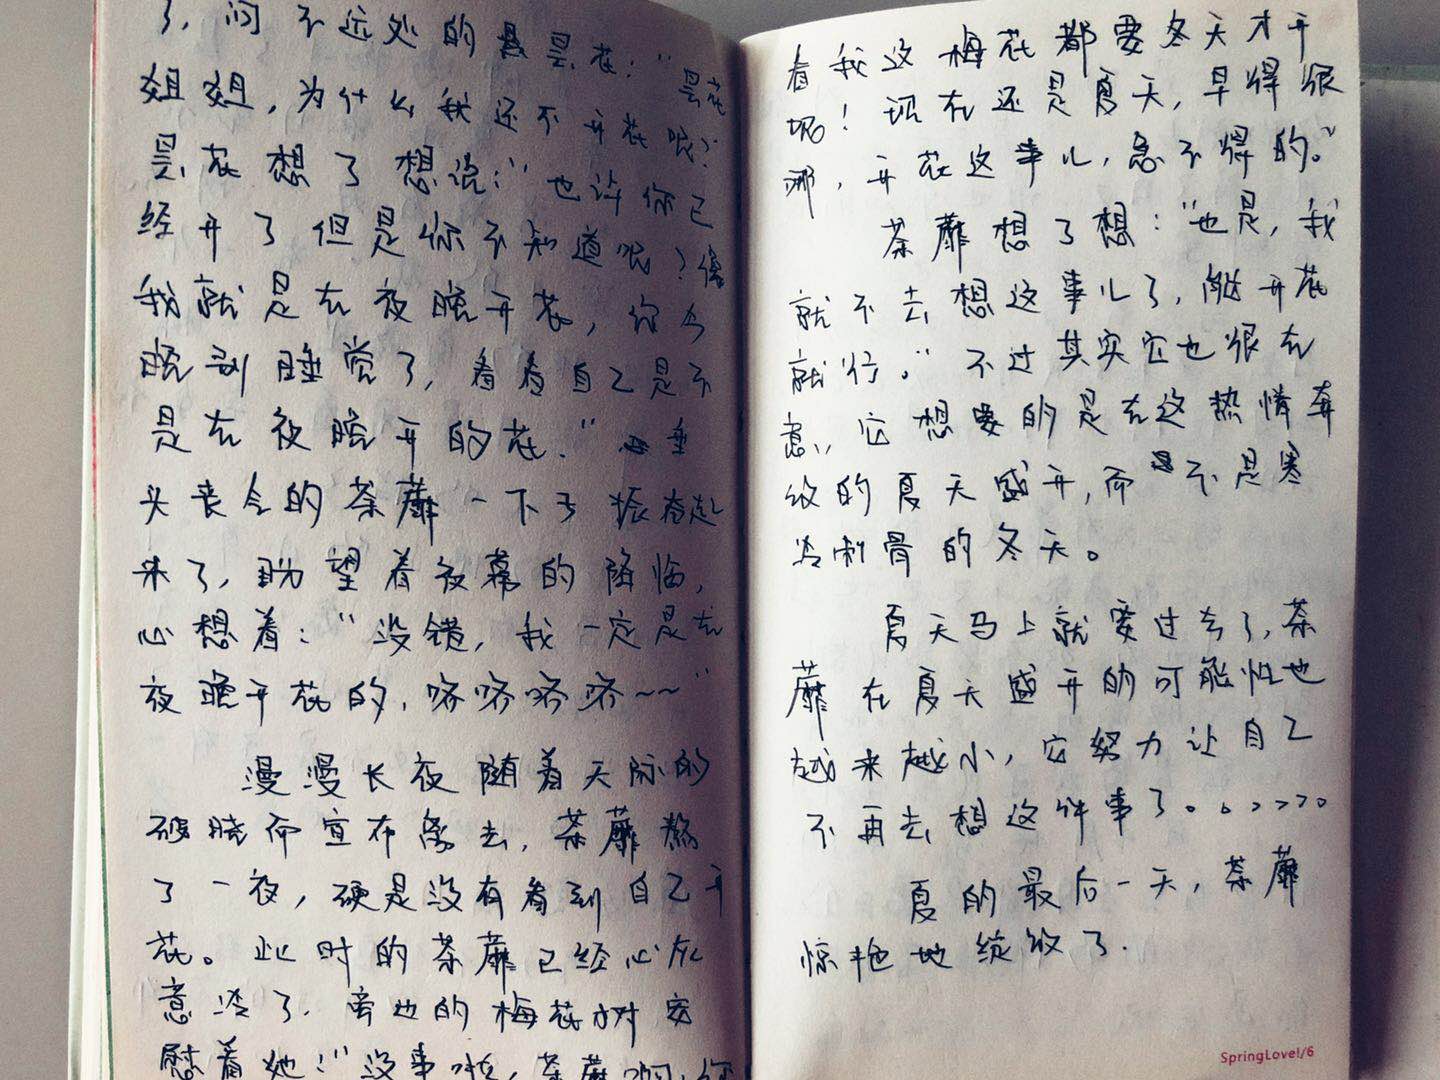 了，问不远处的昙花：“昙花
姐姐，为什么我还不开花呢？”
昙花想了想说：“也许你已
经开了但是你不知道呢？像
我就是在夜晚开花，你今
晚别睡觉了，看看自己是不
是在夜晚开的花。”垂
头丧气的荼蘼一下子振奋起
来了，盼望着夜幕的降临，
心想着：“没错，我一定是在
夜晚开花的，哈哈哈哈~~”
漫漫长夜随着天际的
破晓而宣布离去，荼蘼熬
了一夜，硬是没有看到自己开
花。此时的荼蘼已经心灰
意冷了．旁边的梅花树安
慰着她：“没事啦，荼蘼啊，你
看我这梅花都要冬天才开
呢！现在还是夏天，早得很
哪，开花这事儿，急不得的。”
荼蘼想了想：“也是，我
就不去想这事儿了，能开花
就行。”不过其实它也很在
意，它想要的是在这热情奔
放的夏天盛开，而不是寒
冷刺骨的冬天。
夏天马上就要过去了，荼
蘼在夏天盛开的可能性也
越来越小，它努力让自己
不再去想这件事了。。。。。。
夏的最后一天，荼蘼
惊艳地绽放了．
SpringLovel/6